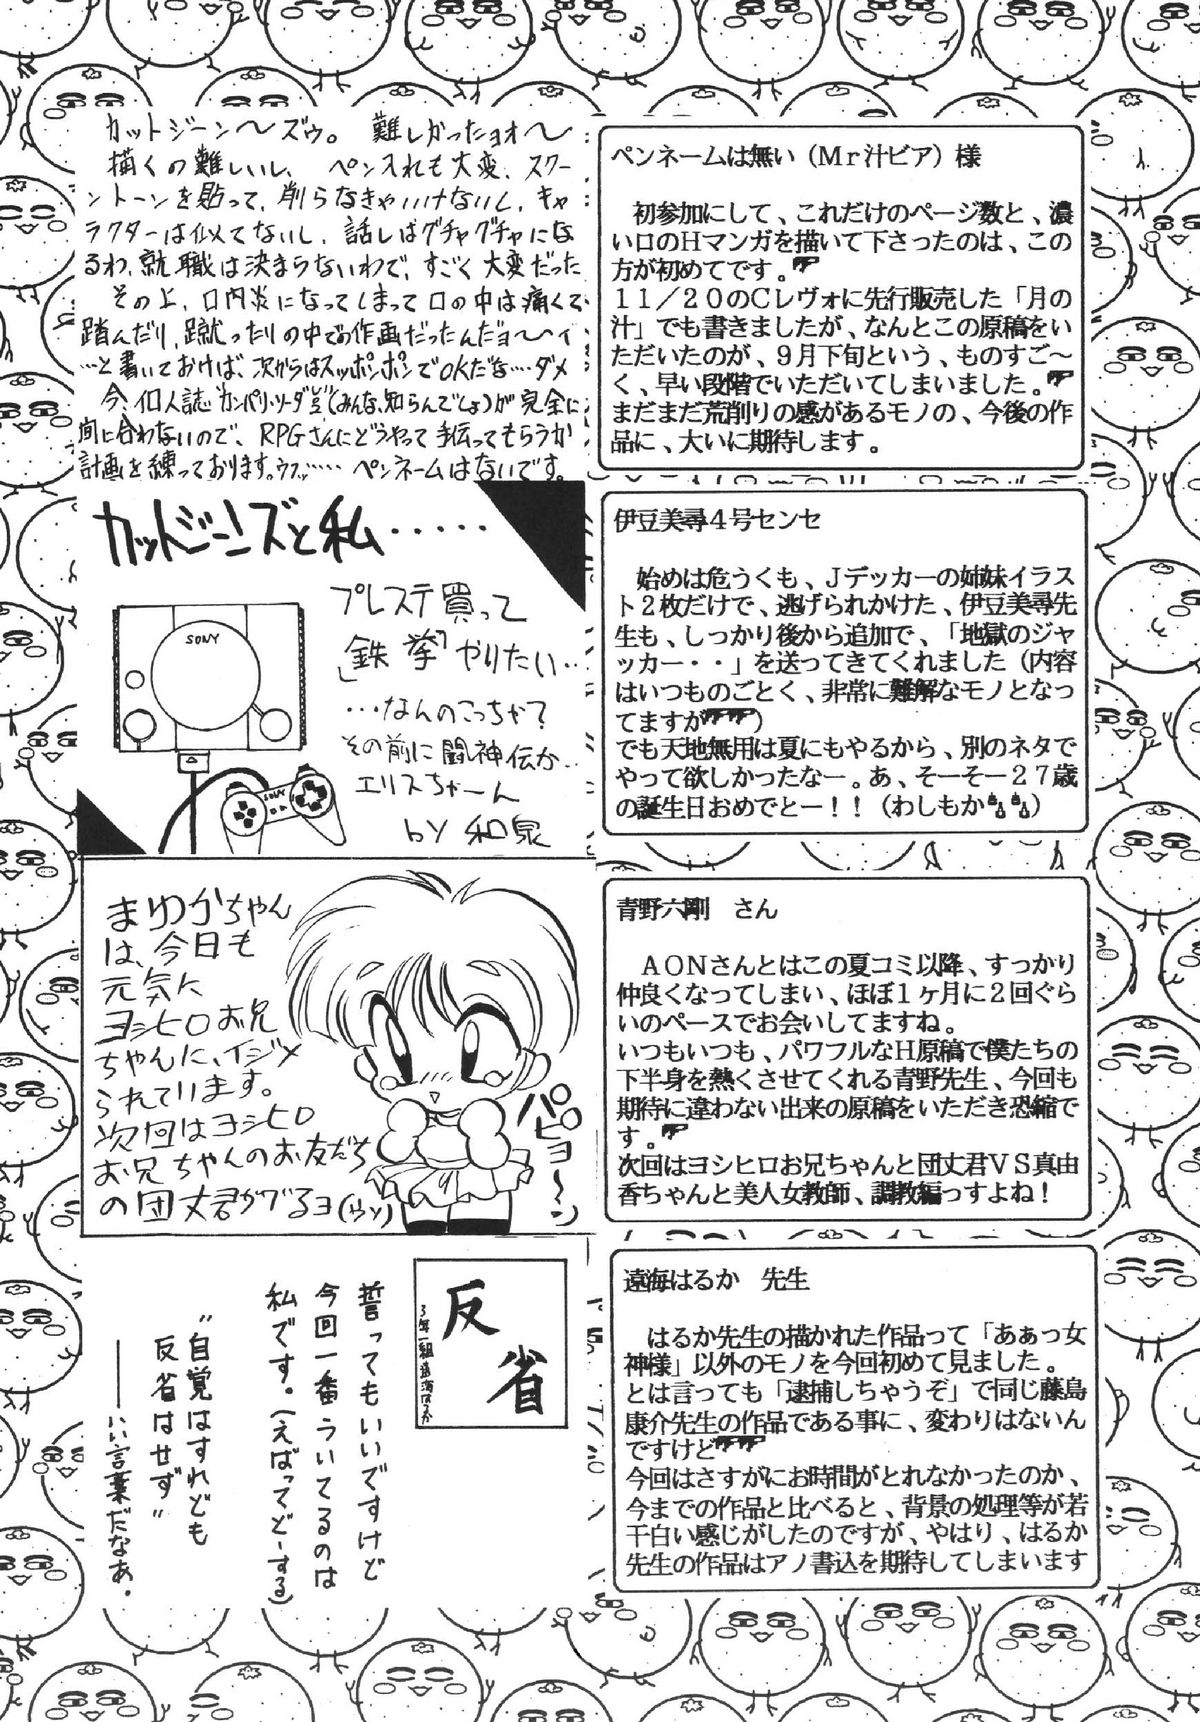 カットジーン〜ズゥ。 難しかったョォ〜
描くの難しいし、ペン入れも大変、スクリ
ーントーンを貼って、削らなきゃいけないし、キャ
ラクターは似てないし、話しはグチャグチャにな
るわ、就職は決まらないわで、すごく大変だった
その上、口内炎になってしまって口の中は痛くて
踏んだり、蹴ったりの中でお作画だったんだョ〜
…と書いておけば、次からはスッポンポンでOKだな…ダメ
今、個人誌“カンパリ・ソーダ”(みんな知らんでしょ)が完全に
間に合わないので、RPGさんにどうやって手伝ってもらうか
計画を練っております。ウフッ…… ペンネームはないです。
ペンネームは無い(Mr汁ビア)様
初参加にして、これだけのページ数と、濃
い口のHマンガを描いて下さったのは、この
方が初めてです。
11/20のCレヴォに先行販売した「月の
汁」でも書きましたが、なんとこの原稿をい
ただいたのが、9月下旬という、ものすご〜
く、早い段階でいただいてしまいました。
まだまだ荒削りの感があるモノの、今後の作
品に、大いに期待します。
カットジーンズと私・・・・・
プレステ買って
「鉄拳」やりたい‥
…なんのこっちゃ?
その前に闘神伝か‥
エリスちゃーん
by 和泉
SONY
SONY
伊豆美尋4号センセ
始めは危うくも、Jデッカーの姉妹イラス
ト2枚だけで、逃げられかけた、伊豆美尋先
生も、しっかり後から追加で、「地獄のジャ
ッカー・・」を送ってきてくれました(内容
はいつものごとく、非常に難解なモノとなっ
てますが)
でも天地無用は夏にもやるから、別のネタで
やって欲しかったなー。あ、そーそー27歳
の誕生日おめでとー!!(わしもか)
まゆかちゃん
は、今日も
元気に
ヨシヒロお兄
ちゃんに、イジメ
られています。
次回はヨシヒロ
お兄ちゃんのお友だち
の団丈君がでるヨ(ウソ)
パピョ〜ン
青野六剛 さん
AONさんとはこの夏コミ以降、すっかり
仲良くなってしまい、ほぼ1ヶ月に2回ぐら
いのペースでお会いしてますね。
いつもいつも、パワフルなH原稿で僕たちの
下半身を熱くさせてくれる青野先生、今回も
期待に違わない出来の原稿をいただき恐縮で
す。
次回はヨシヒロお兄ちゃんと団丈君VS真由
香ちゃんと美人女教師、調教編っすよね!
反省
3年一組遠海はるか
誓ってもいいですけど
今回一番ういてるのは
私です。(えばってどーする)
“自覚はすれども
反省はせず”
――いい言葉だなあ.
遠海はるか 先生
はるか先生の描かれた作品って「あぁっ女
神様」以外のモノを今回初めて見ました。
とは言っても「逮捕しちゃうぞ」で同じ藤島
康介先生の作品である事に、変わりはないん
ですけど
今回はさすがにお時間がとれなかったのか、
今までの作品と比べると、背景の処理等が若
干白い感じがしたのですが、やはり、はるか
先生の作品はアノ書込を期待してしまいます